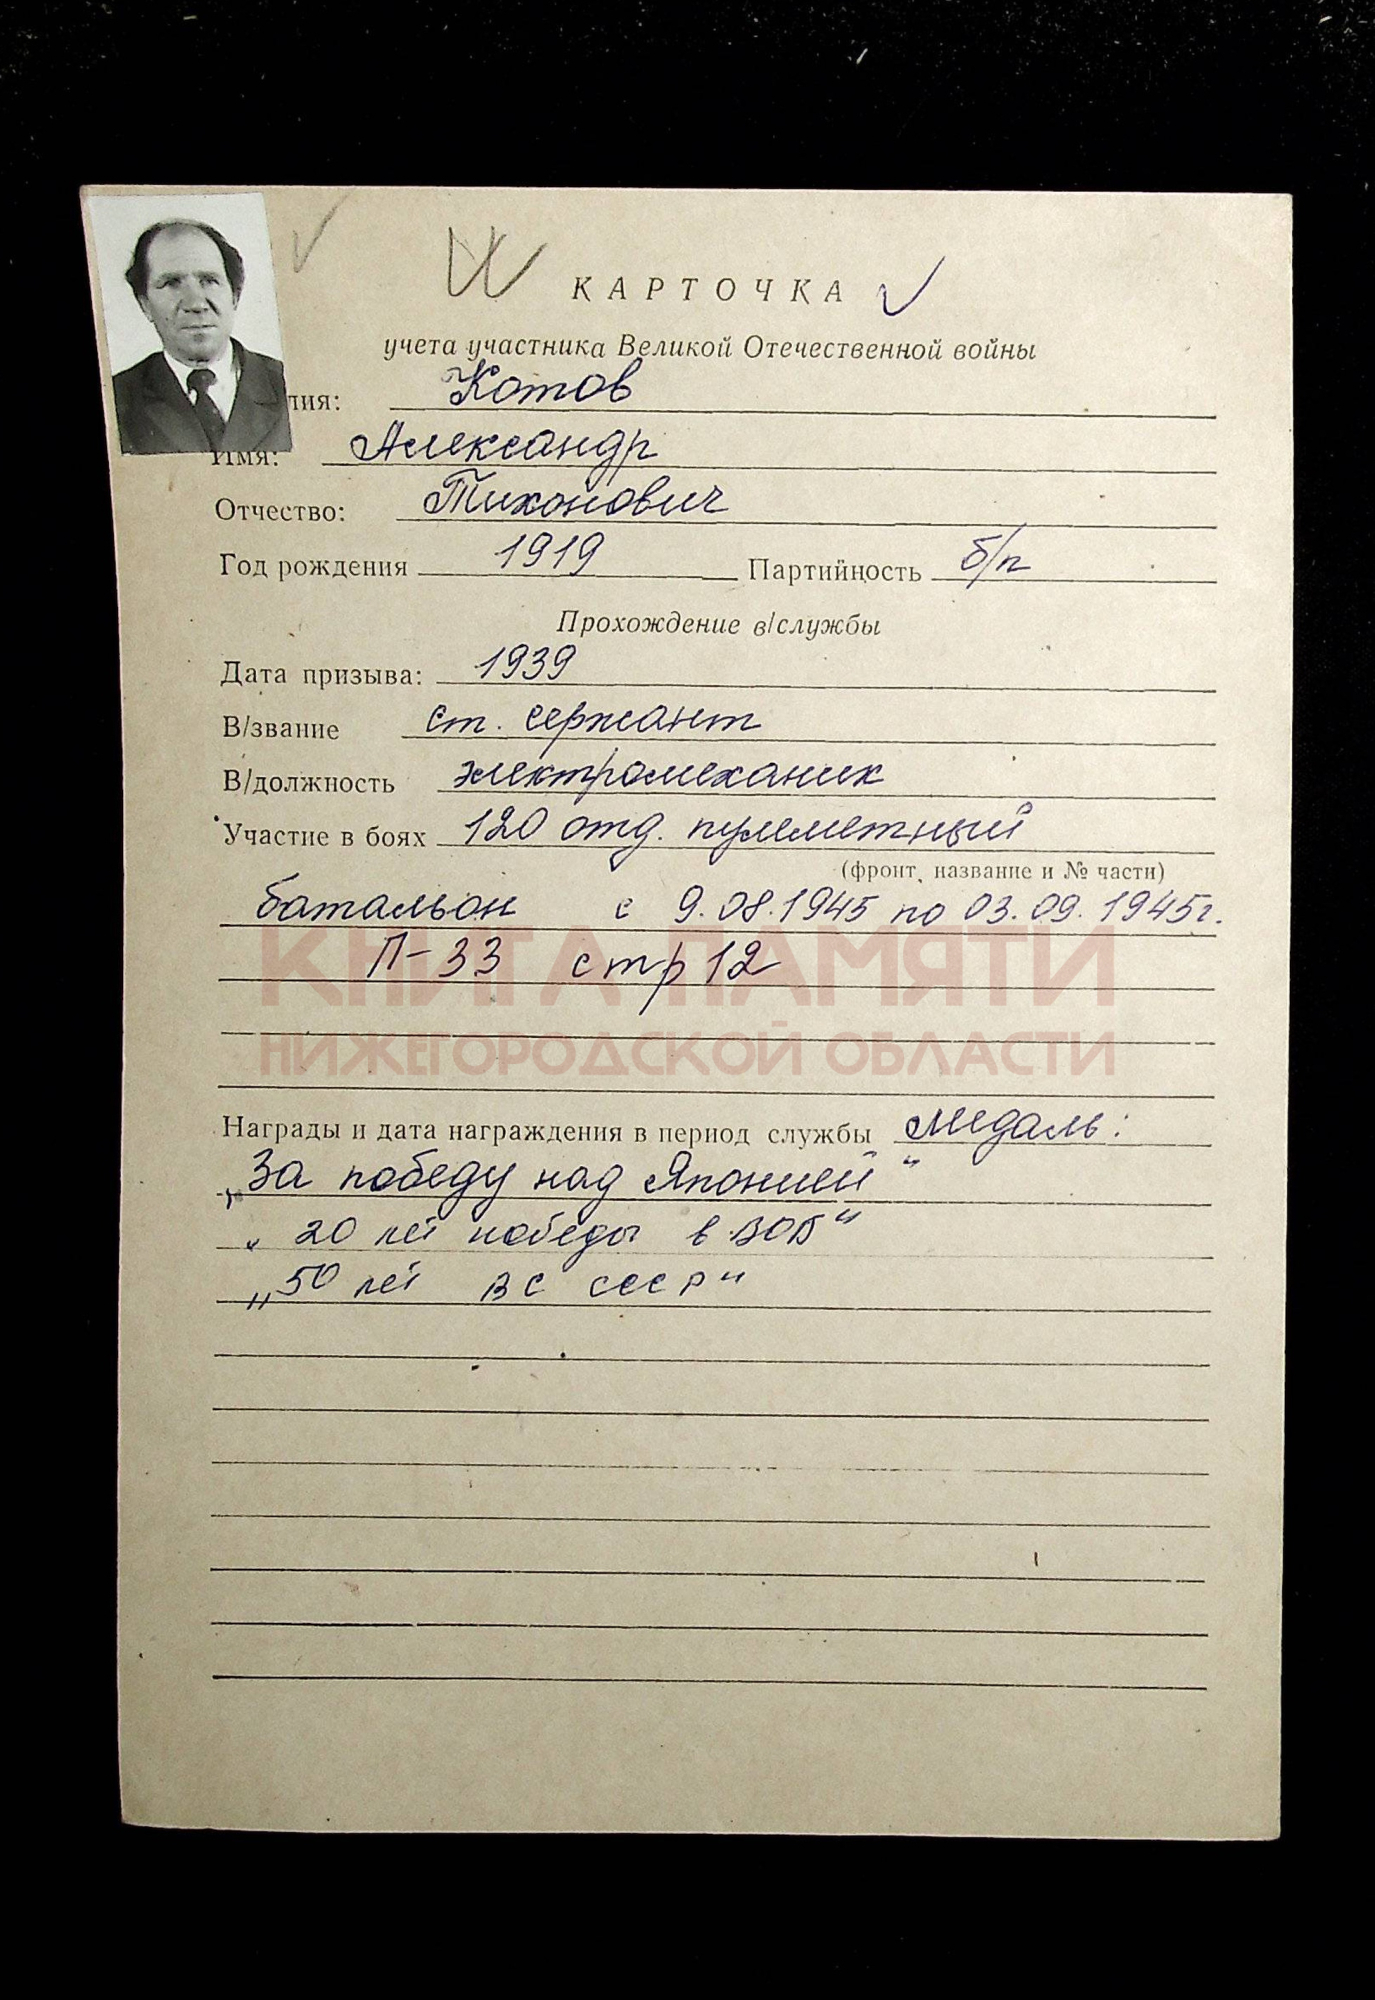 КАРТОЧКА
учета участника Великой Отечественной войны
лия: Котов
Имя: Александр
Отчество: Тихонович
Год рождения 1919 Партийность б/п
Прохождение в/службы
Дата призыва: 1939
В/звание ст. сержант
В/должность электромеханик
Участие в боях 120 отд. пулеметный
(фронт, название и № части)
батальон с 9.08.1945 по 03.09.1945г.
П-33 стр 12
КНИГА ПАМЯТИ
НИЖЕГОРОДСКОЙ ОБЛАСТИ
Награды и дата награждения в период службы медаль:
„За победу над Японией"
„20 лет победы в ВОВ"
„50 лет ВС СССР"